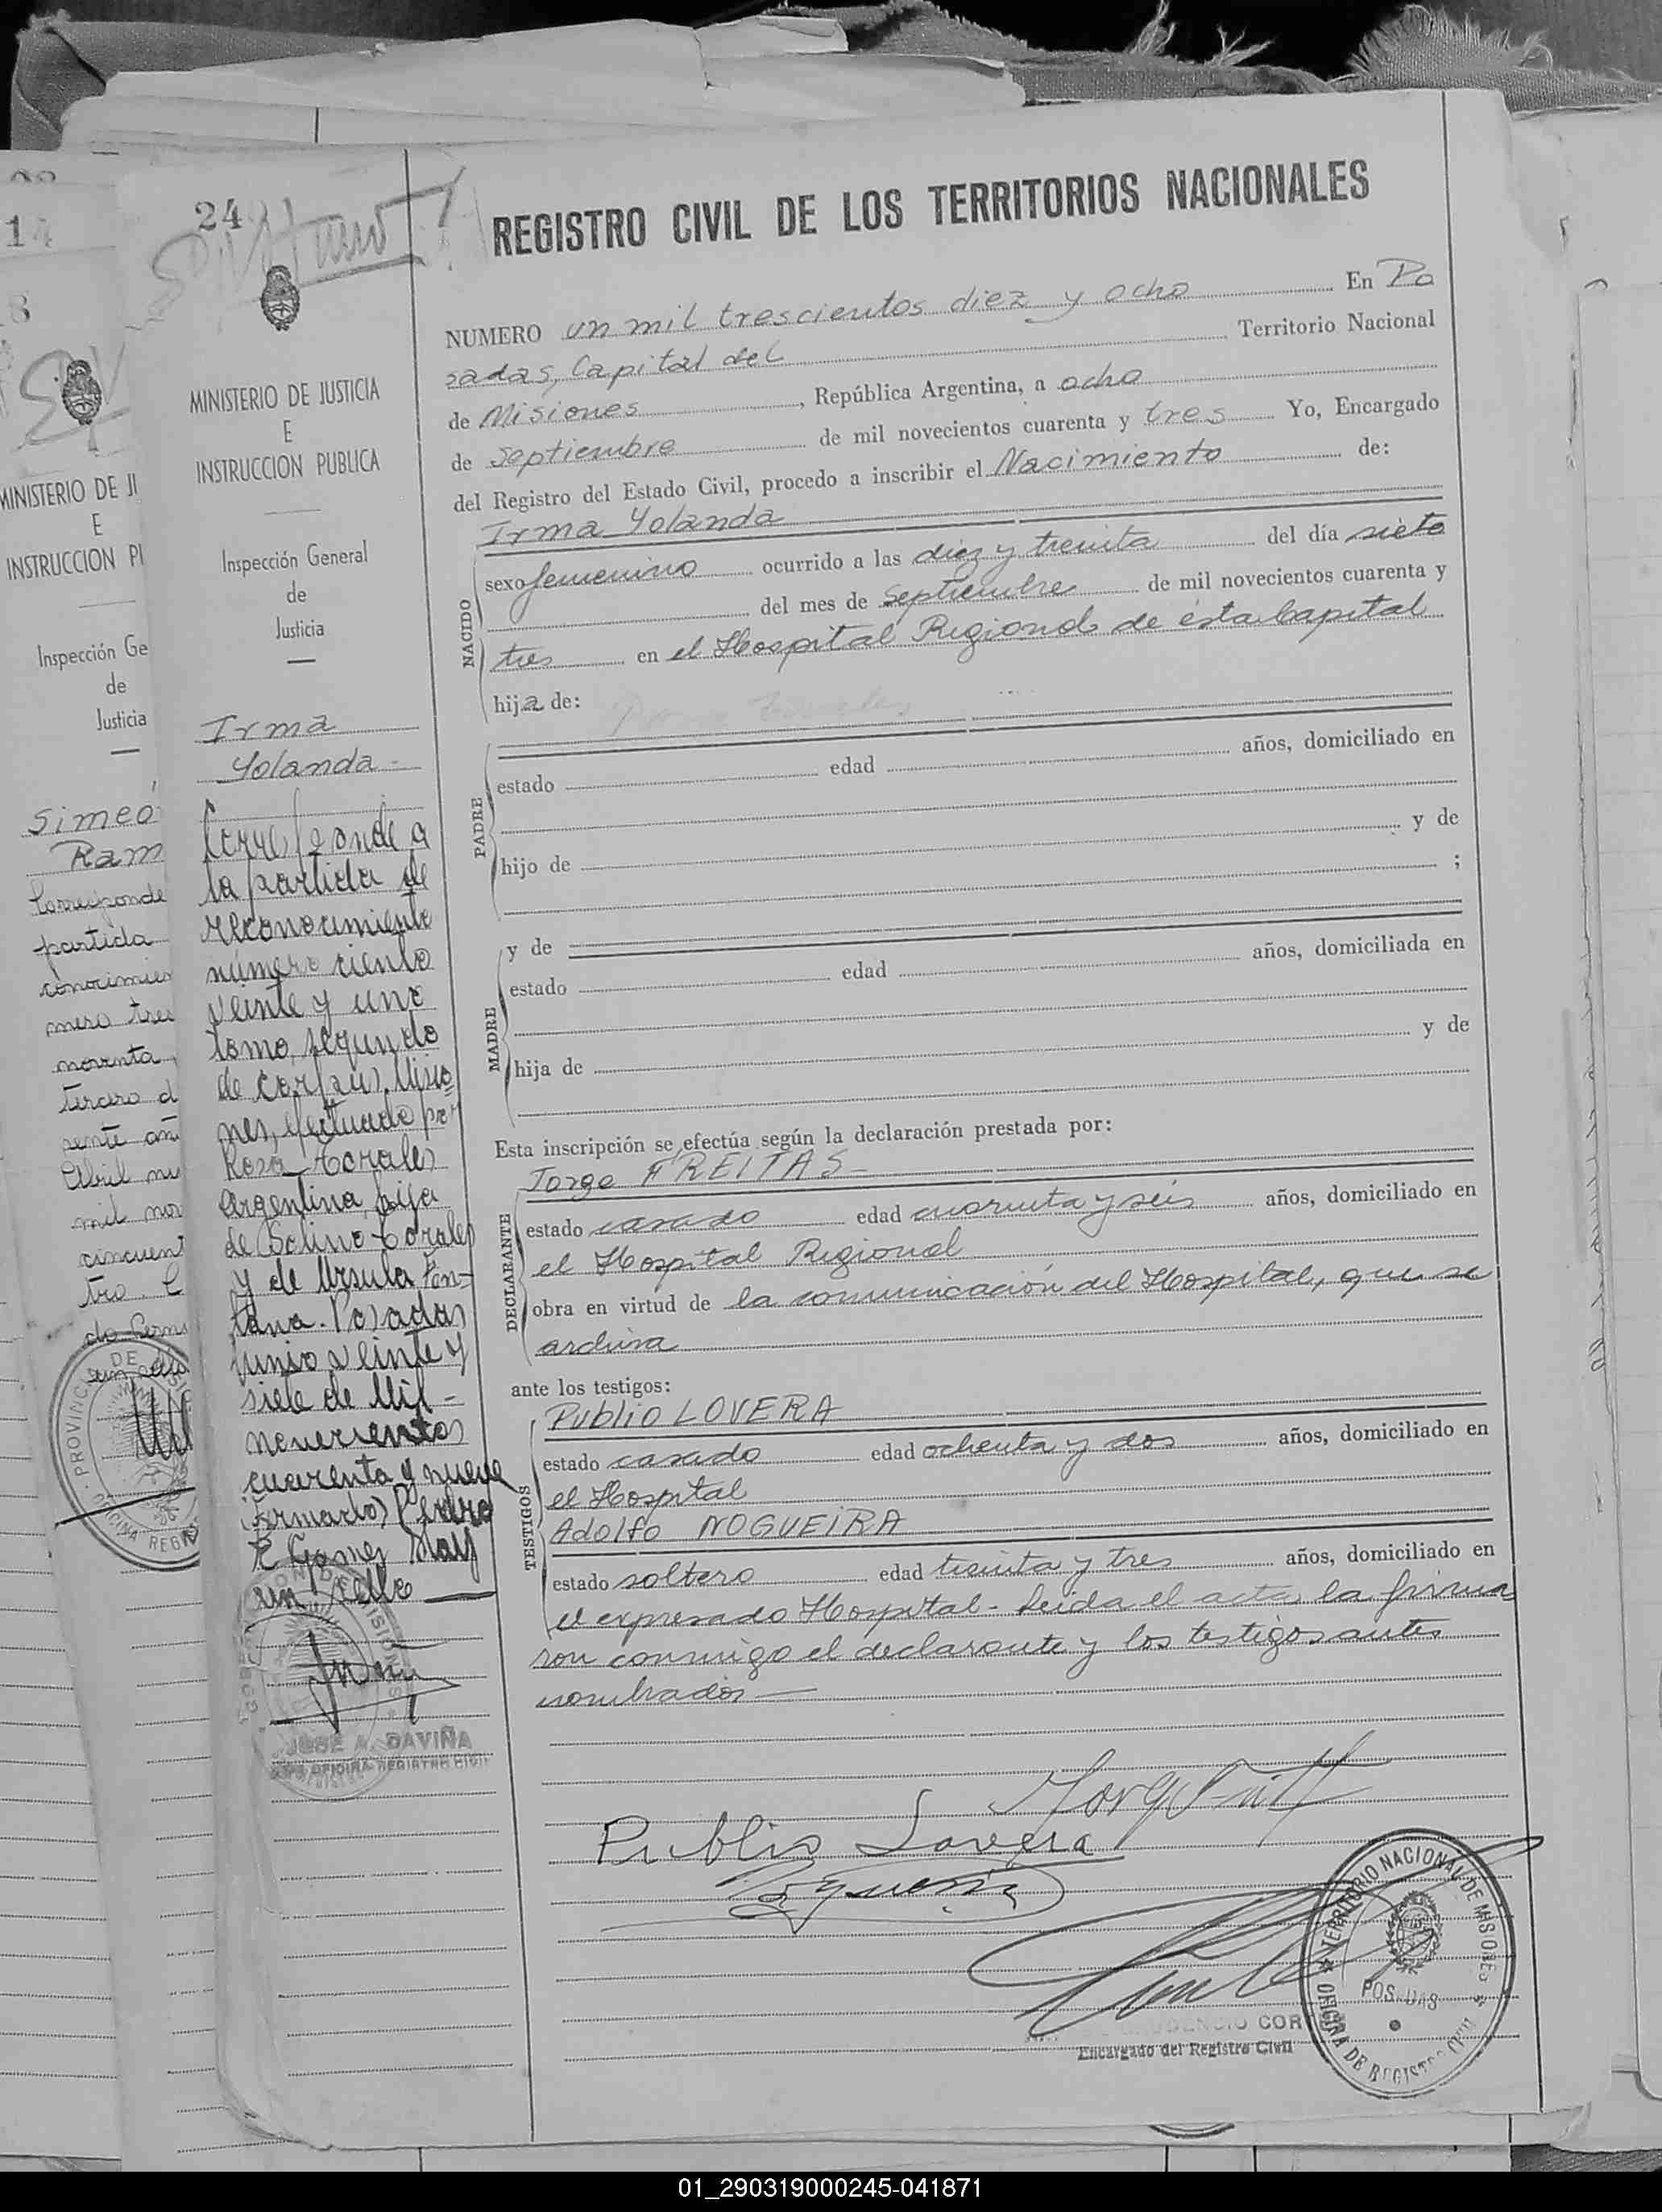 24
MINISTERIO DE JUSTICIA
E
INSTRUCCION PUBLICA
Inspección General
de
Justicia
Irma
Yolanda -
Corresponde a
la partida de
reconocimiento
número ciento
veinte y uno
tomo segundo
de Corpus, Misio
nes, efectuado por
Rosa Corales
Argentina, hija
de Bolino Corales
y de Ursula Fon-
tana. Posadas
junio veinte y
siete de Mil -
novecientos
cuarenta y nueve
firmado, Pedro
R Gomes Hay
un sello
JOSE A. DAVIÑA
JEFE OFICINA REGISTRO CIVIL
REGISTRO CIVIL DE LOS TERRITORIOS NACIONALES
NUMERO un mil trescientos diez y ocho En Po
sadas, Capital del Territorio Nacional
de Misiones, República Argentina, a ocho
de Septiembre de mil novecientos cuarenta y tres Yo, Encargado
del Registro del Estado Civil, procedo a inscribir el Nacimiento de:
Irma Yolanda
NACIDO
sexo femenino ocurrido a las diez y treinta del día siete
del mes de Septiembre de mil novecientos cuarenta y
tres en el Hospital Regional de ésta Capital
hija de:
PADRE
estado edad años, domiciliado en
hijo de y de
;
MADRE
y de
estado edad años, domiciliada en
hija de y de
Esta inscripción se efectúa según la declaración prestada por:
DECLARANTE
Jorge FREITAS
estado casado edad cuarenta y seis años, domiciliado en
el Hospital Regional
obra en virtud de la comunicación del Hospital, que se
archiva
ante los testigos:
TESTIGOS
Publio LOVERA
estado casado edad ochenta y dos años, domiciliado en
el Hospital
Adolfo NOGUEIRA
estado soltero edad treinta y tres años, domiciliado en
el expresado Hospital - Leida el acta, la firma
ron conmigo el declarante y los testigos antes
nombrados
Publio Lovera
Encargado del Registro Civil
TERRITORIO NACIONAL DE MISIONES
POSADAS
OFICINA DE REGISTRO CIVIL
14
MINISTERIO DE JU
E
INSTRUCCION PU
Inspección Ge
de
Justicia
Simeó
Ram
Corresponde
partida
conocimien
mero tres
noventa
tercero d
sente añ
Abril nu
mil nov
cincuent
tro.
01_290319000245-041871